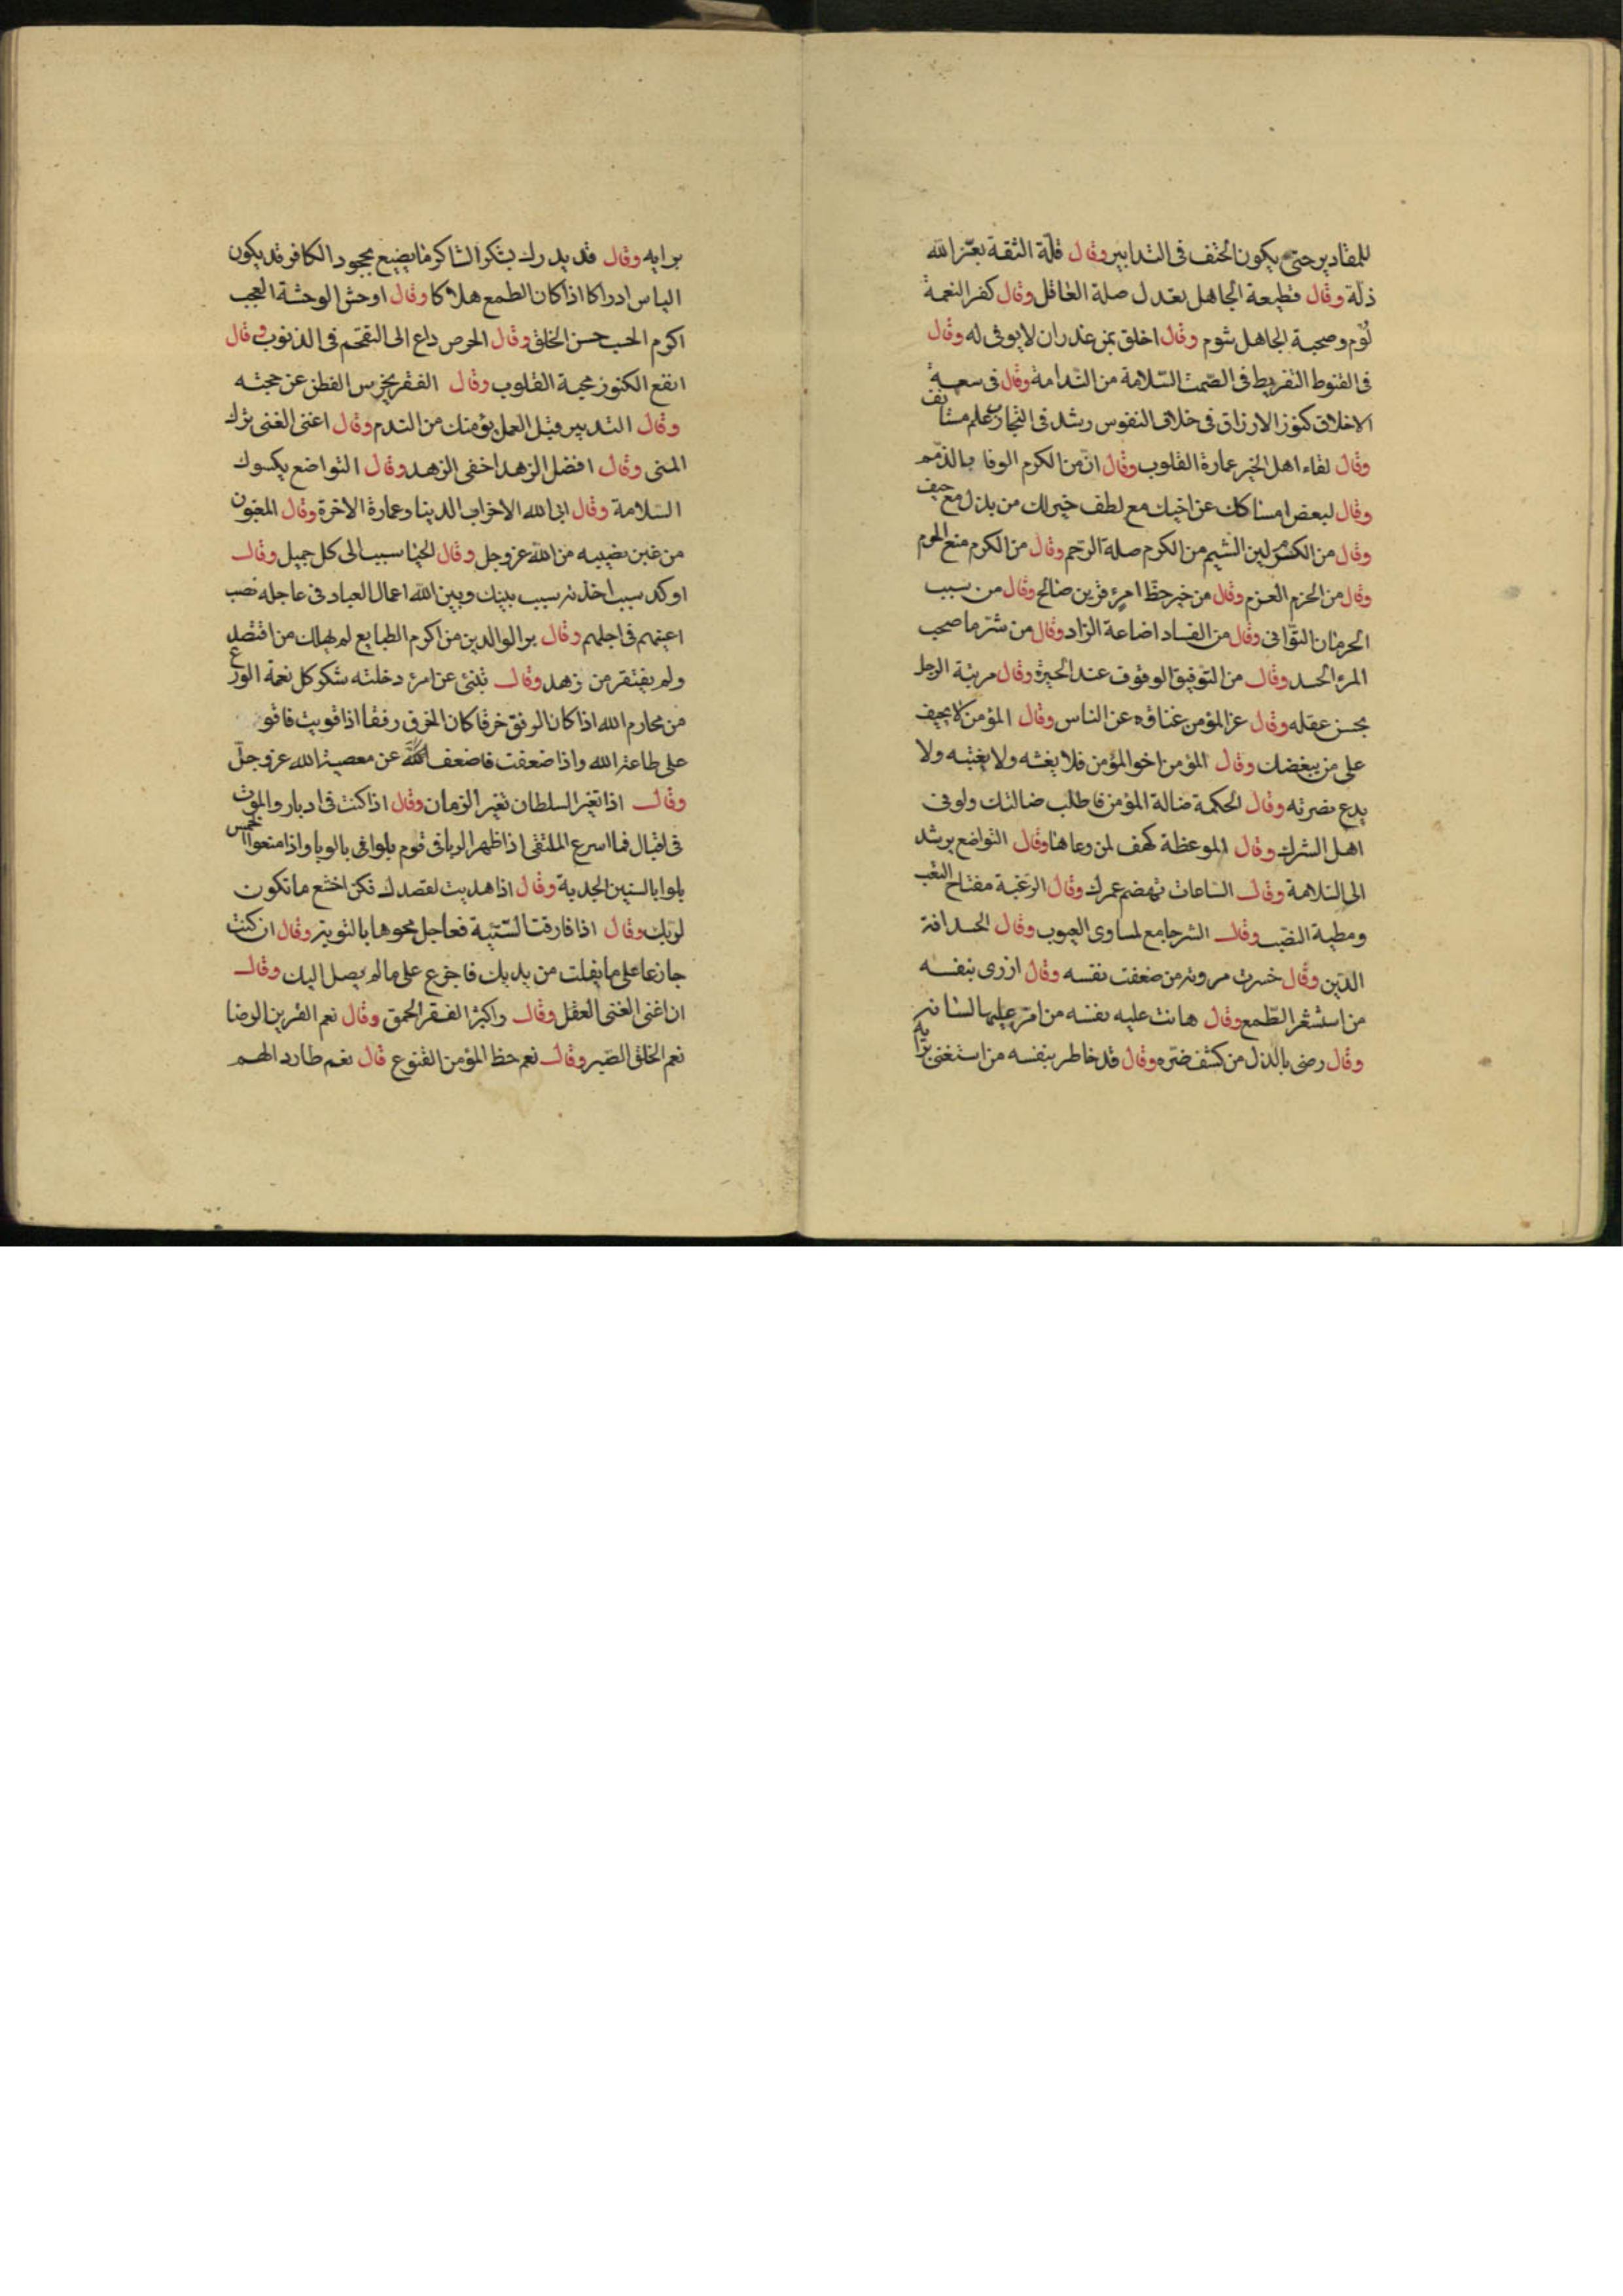 للمقادير حتى يكون الحتف فى التدابير وقال قلة الثقة بعز الله
ذلة وقال قطيعة الجاهل بعدل صلة العاقل وقال كفر النعمة
لؤم وصحبة الجاهل شوم وقال اخلق بمن غدر ان لا يوفى له وقال
فى القنوط التفريط فى الصمت السلامة من الندامة وقال فى سعة
الاخلاق كنوز الارزاق فى خلاف النفوس رشد فى التجارب علم مستانف
وقال لقاء اهل الخير عمارة القلوب وقال ان من الكرم الوفا بالذمم
وقال لبعض امساكك عن اخيك مع لطف خير لك من بذل مع حيف
وقال من الكرم لين الشيم من الكرم صلة الرحم وقال من الكرم منع الحرم
وقال من الحزم العزم وقال من خير حظ امرئ قرين صالح وقال من سبب
الحرمان التوانى وقال من الفساد اضاعة الزاد وقال من شر ما صحب
المرء الحسد وقال من التوفيق الوقوف عند الحيرة وقال مرتبة الرجل
بحسن عقله وقال عز المؤمن غناؤه عن الناس وقال المؤمن لا يحيف
على من يبغضك وقال المؤمن اخو المؤمن فلا يغشه ولا يغتبه ولا
يدع نصرته وقال الحكمة ضالة المؤمن فاطلب ضالتك ولو فى
اهل الشرك وقال الموعظة كهف لمن وعاها وقال التواضع يرشد
الى السلامة وقال الساعات تهضم عمرك وقال الرغبة مفتاح التعب
ومطية النصب وقال الشر جامع لمساوى العيوب وقال الحسد افة
الدين وقال خسرت مروته من ضعفت نفسه وقال ازرى بنفسه
من استشعر الطمع وقال هانت عليه نفسه من امر عليها لسانه
وقال رضى بالذل من كشف ضره وقال قد خاطر بنفسه من استغنى برأيه
برايه وقال قد يدرك بشكر الشاكر ما يضيع بجحود الكافر قد يكون
الياس ادراكا اذا كان الطمع هلاكا وقال اوحش الوحشة العجب
اكرم الحسب حسن الخلق وقال الحرص داع الى التقحم فى الذنوب وقال
انفع الكنوز محبة القلوب وقال الفقر يخرس الفطن عن حجته
وقال التدبير قبل العمل يؤمنك من الندم وقال اغنى الغنى ترك
المنى وقال افضل الزهد اخفى الزهد وقال التواضع يكسوك
السلامة وقال ابى الله الا خراب الدنيا وعمارة الاخرة وقال المغبون
من غبن نصيبه من الله عز وجل وقال الحيا سبب الى كل جميل وقال
اوكد سبب اخذته سبب بينك وبين الله اعمال العباد فى عاجله نصب
اعينهم فى اجلهم وقال بر الوالدين من اكرم الطبايع لم يهلك من اقتصد
ولم يفتقر من زهد وقال تنبئ عن امرئ دخلته شكر كل نعمة الورع
من محارم الله اذا كان الرفق خرقا كان الخرق رفقا اذا قويت فاقو
على طاعة الله واذا ضعفت فاضعف عن معصية الله عز وجل
وقال اذا تغير السلطان تغير الزمان وقال اذا كنت فى ادبار والموت
فى اقبال فما اسرع الملتقى اذا ظهر الربا فى قوم بلوا فى بالوبا واذا منعوا الخمس
بلوا بالسنين الجدبة وقال اذا هديت لقصدك فكن اخشع ما تكون
لربك وقال اذا فارقت السيئة فعاجل محوها بالتوبة وقال ان كنت
جازعا على ما يفلت من يديك فاجزع على ما لم يصل اليك وقال
ان اغنى الغنى العقل وقال واكبر الفقر الحمق وقال نعم القرين الرضا
نعم الخلق الصبر وقال نعم حظ المؤمن القنوع قال نعم طارد الهم